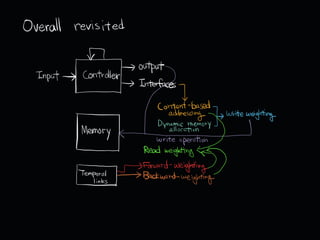 Overall revisited
output
Input
Controller
Interface
Content-based
addressing
Write weighting
Dynamic memory
allocation
Memory
write operation
Read weighting
Temporal
links
Forward-weighting
Backward-weighting